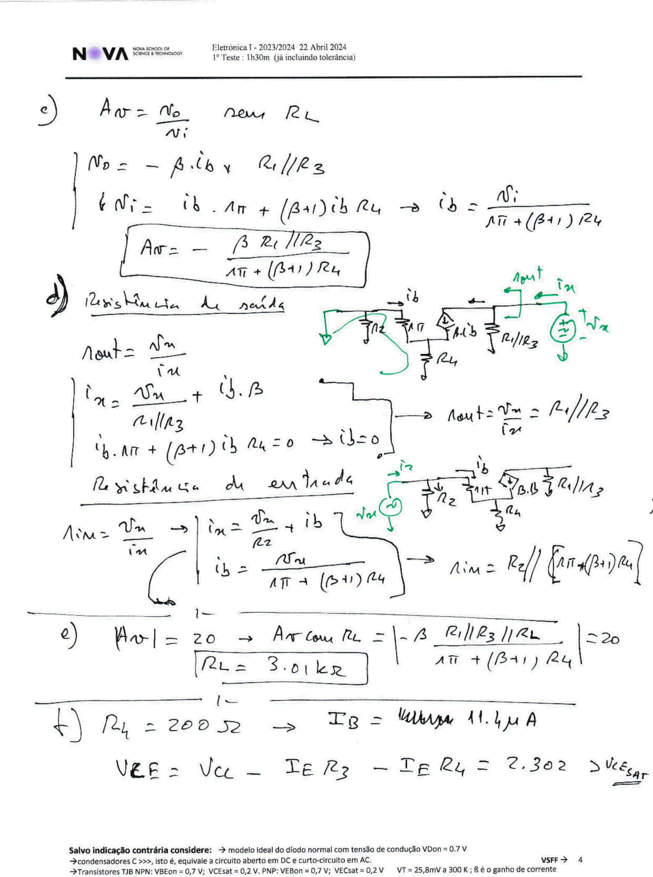 NOVA NOVA SCHOOL OF SCIENCE & TECHNOLOGY
Eletrónica I - 2023/2024 22 Abril 2024
1º Teste : 1h30m (já incluindo tolerância)
c) Av = vo/vi sem RL
vo = - β.ib × R1//R3
vi = ib . rπ + (β+1) ib R4 → ib = vi / (rπ + (β+1) R4)
Av = - β R1//R3 / (rπ + (β+1) R4)
d) Resistência de saída
ib rout ix
R2 rπ β.ib R1//R3 + vx -
R4
rout = vx/ix
ix = vx/(R1//R3) + ib.β
→ rout = vx/ix = R1//R3
ib.rπ + (β+1) ib R4 = 0 → ib = 0
Resistência de entrada
ix ib
vx R2 rπ β.B R1//R3
R4
rin = vx/ix → ix = vx/R2 + ib
ib = vx / (rπ + (β+1) R4)
→ rin = R2// [rπ+(β+1) R4]
e) |Av| = 20 → Av com RL = |- β R1//R3//RL / (rπ + (β+1) R4)| = 20
RL = 3.01 kΩ
f) R4 = 200 Ω → IB = 11.4 μA
VCE = VCC - IE R3 - IE R4 = 2.302 > VCE SAT
Salvo indicação contrária considere: → modelo ideal do díodo normal com tensão de condução VDon = 0.7 V
→condensadores C >>>, isto é, equivale a circuito aberto em DC e curto-circuito em AC. VSFF → 4
→Transístores TJB NPN: VBEon = 0,7 V; VCEsat = 0,2 V. PNP: VEBon = 0,7 V; VECsat = 0,2 V VT = 25,8mV a 300 K ; ß é o ganho de corrente